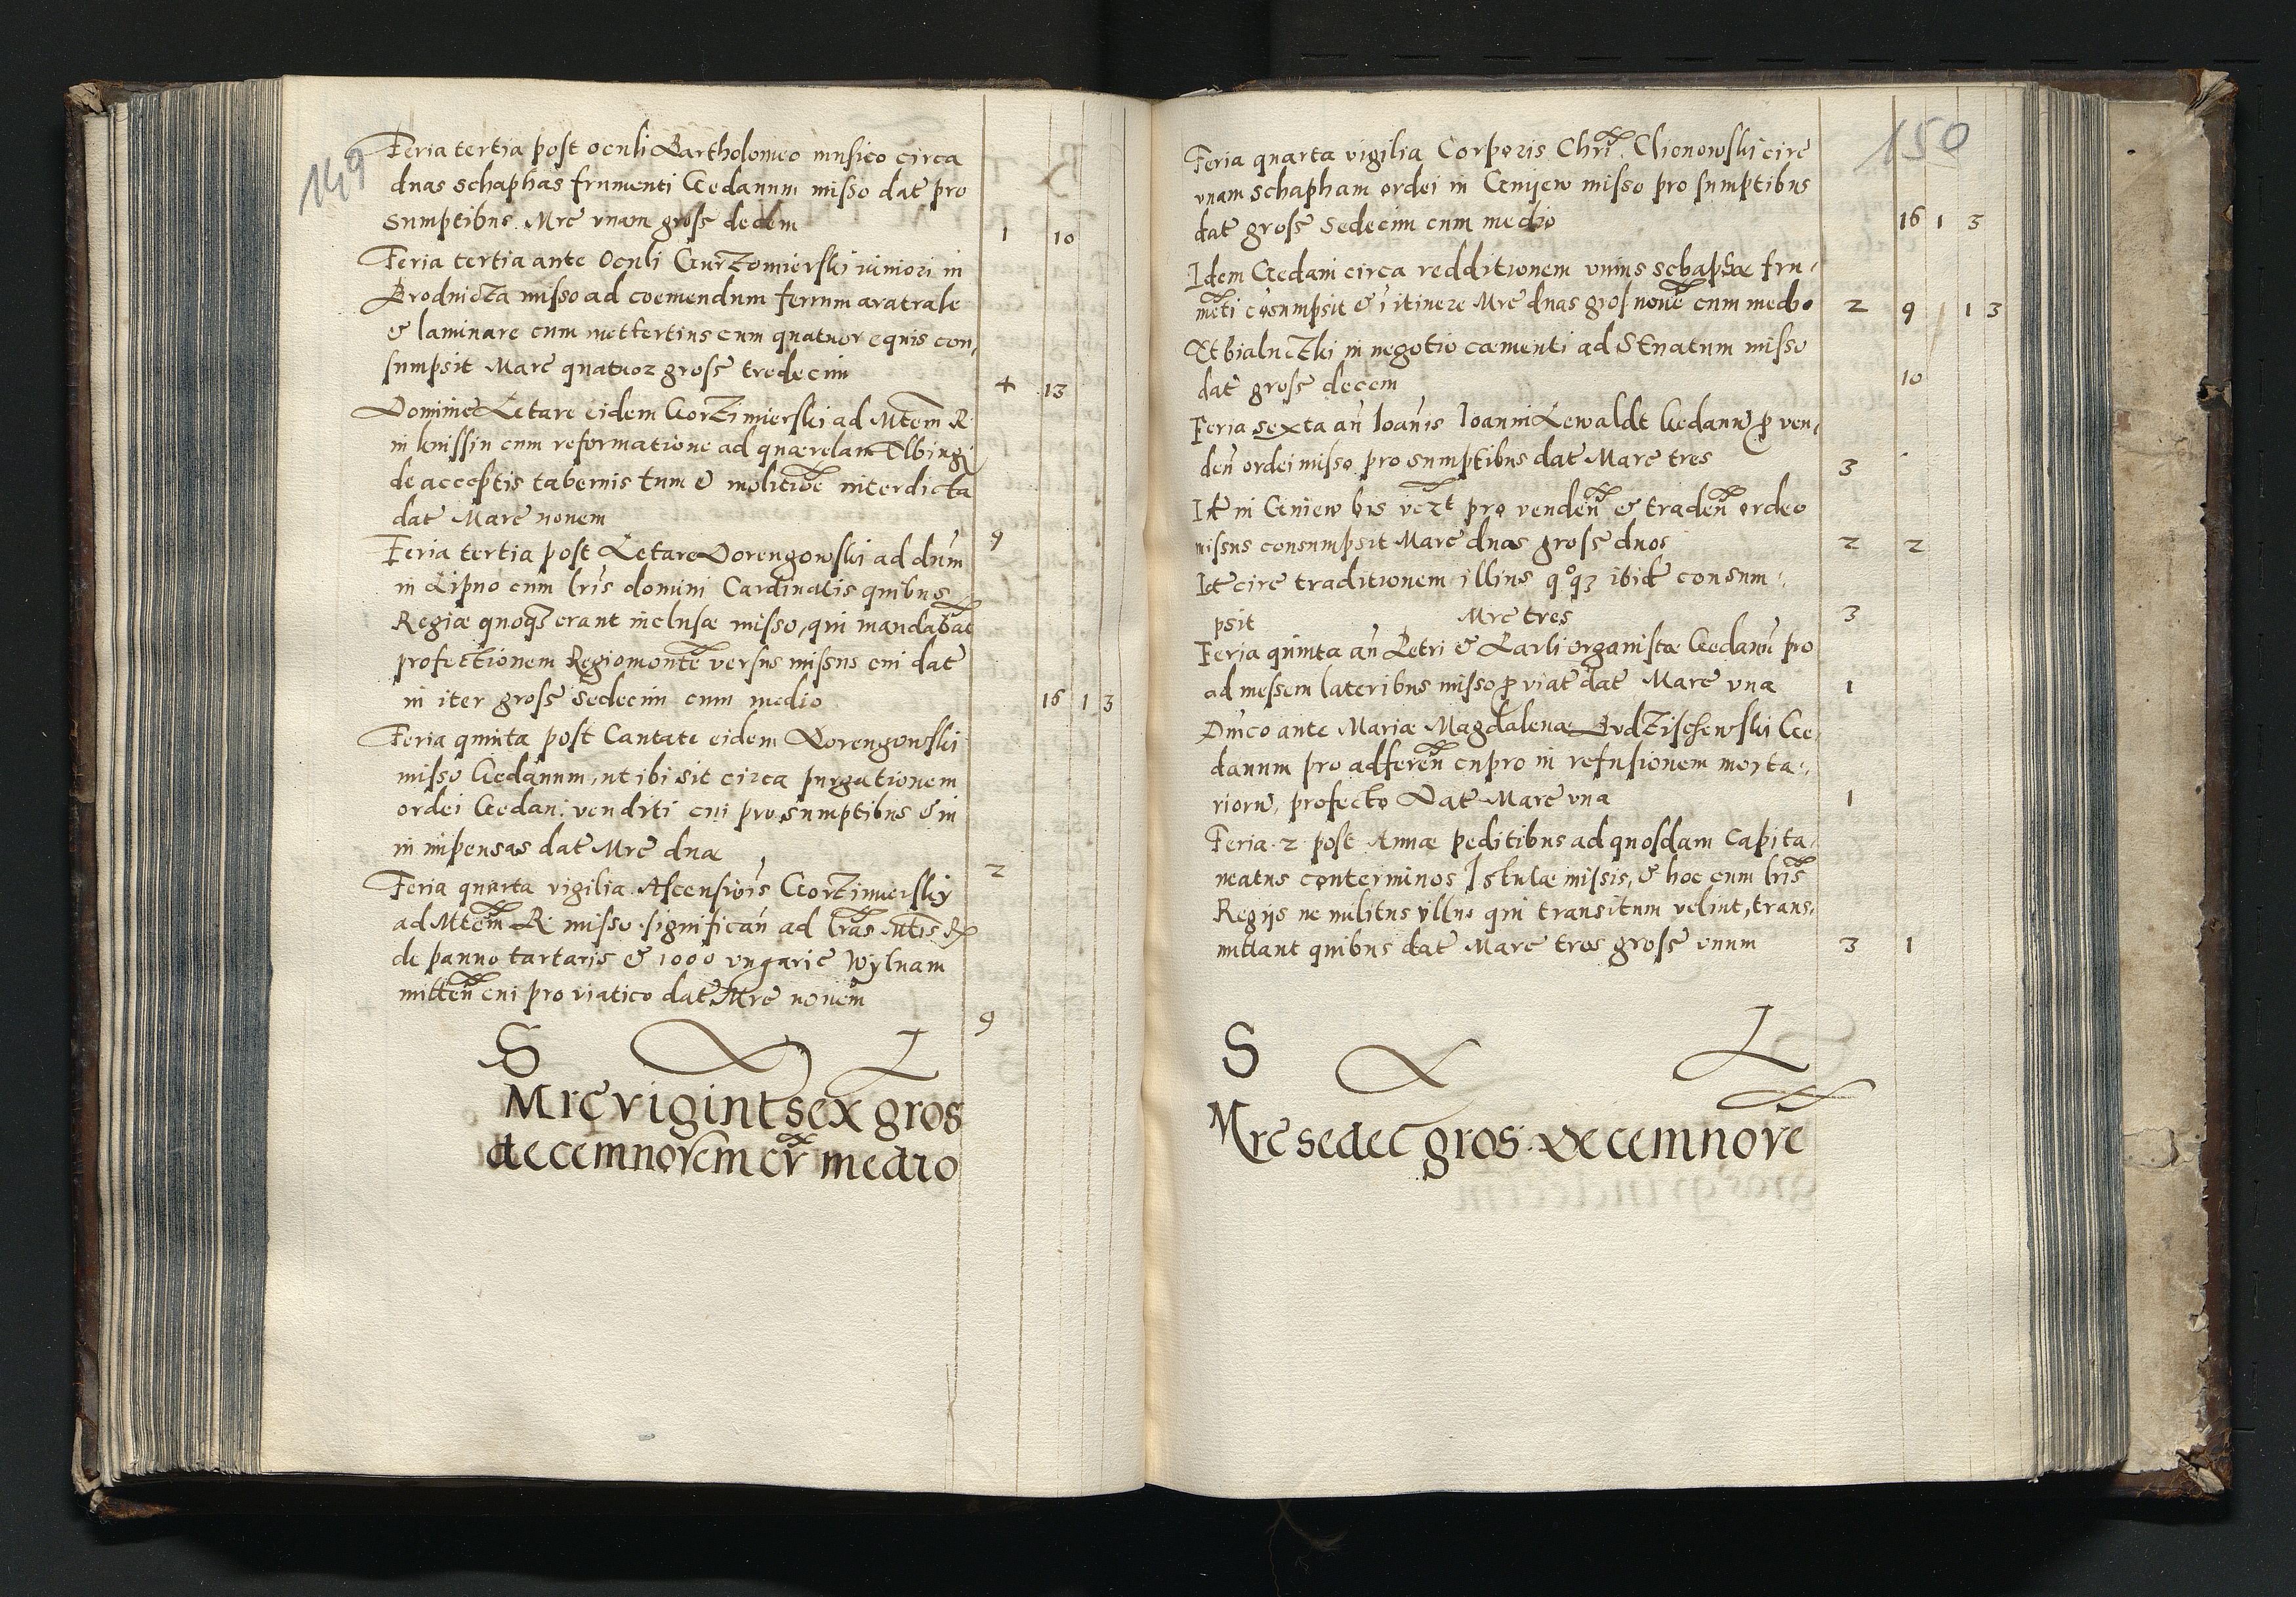 149
Feria tertia post oculi Bartholomeo musico circa
duas schaphas frumenti Gedanum misso dat pro
sumptibus Mrc vnam gross decem 1 10
Feria tertia ante Oculi Gurzomierski iuniori in
Brodnicza misso ad coemendum ferrum aratrale
& laminare cum mettertius cum quatuor equis con,
sumpsit Marc quatuor gross tredecim 4 13
Dominic Letare eidem Gortzimierski ad Mtem R
in knissin cum reformatione ad quærelam Elbingi
de acceptis tabernis tum & molitiõe interdicta
dat Marc nouem 9
Feria tertia post Letare Dorengowski ad dnum
in Lipno cum lris domini Cardinalis quibus
Regiæ quoqz erant inclusæ misso, qui mandabat
profectionem Regiomonte versus missus cui dat
in iter gross sedecim cum medio 16 1 3
Feria quinta post Cantate eidem Dorengowski
misso Gedanum, ut ibi sit circa purgationem
ordei Gedani venditi cui pro sumptibus & in
in impensas dat Mrc duæ 2
Feria quarta vigilia Ascensiõis Gortzimierskij
ad Mtem R misso significan ad lras Mtis R
de panno tartaris & 1000 vngaric Wylnam
mitten cui pro viatico dat Mrc nouem 9
S L
Mrc vigint sex gros
decemnovem cu medio
150
Feria quarta vigilia Corporis Chri Clionowski circ
vnam schapham ordei in Gniew misso pro sumptibus
dat gross Sedecim cum medio 16 1 3
Idem Gedani circa redditionem vnius schaphæ fru,
meti cosumpsit & i itinere Mrc duas gros noue cum medio 2 9 1 3
Xtbialuczki in negotio cæmenti ad SEnatum misso
dat gross decem 10
Feria sexta an Joanis Joanni Lewaldt Gedanu p ven,
den ordei misso pro sumptibus dat Marc tres 3
It in Gniew bis vert pro venden & traden ordeo
missus consumpsit Marc duas gross duos 2 2
It circ traditionem illius qoqz ibide consum,
psit Mrc tres 3
Feria quinta an Petri & Pauli organistæ Gedanu pro
ad messem lateribus misso p viat dat Marc vna 1
Dnico ante Mariæ Magdalenæ Budzischewski Ge,
danum pro adferen cupro in refusionem morta,
rioru, profecto Dat Marc vna 1
Feria 2 post Annæ peditibus ad quosdam Capita,
neatus conterminos Istulæ missis, & hoc cum lris
Regijs ne militus vllus qui transitum velint, trans,
mittant quibus dat Marc tres gross vnum 3 1
S L
Mrc sedec gros decemnove